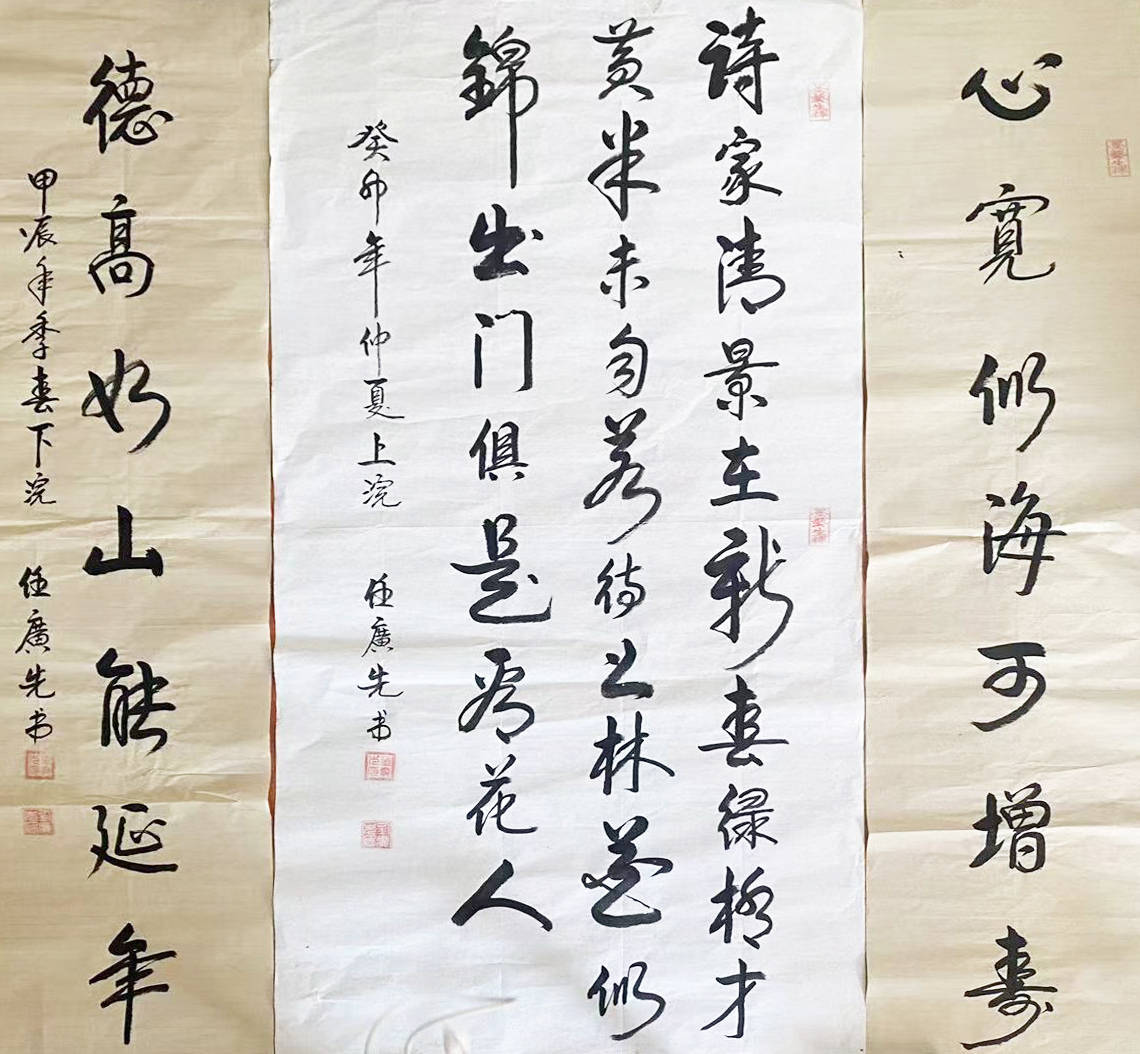 心寬似海可增壽
詩家清景在新春綠柳才
黄半未匀若待上林花似
錦出门俱是看花人
癸卯年仲夏上浣 任廣先书
德高如山能延年
甲辰年季春下浣 任廣先书